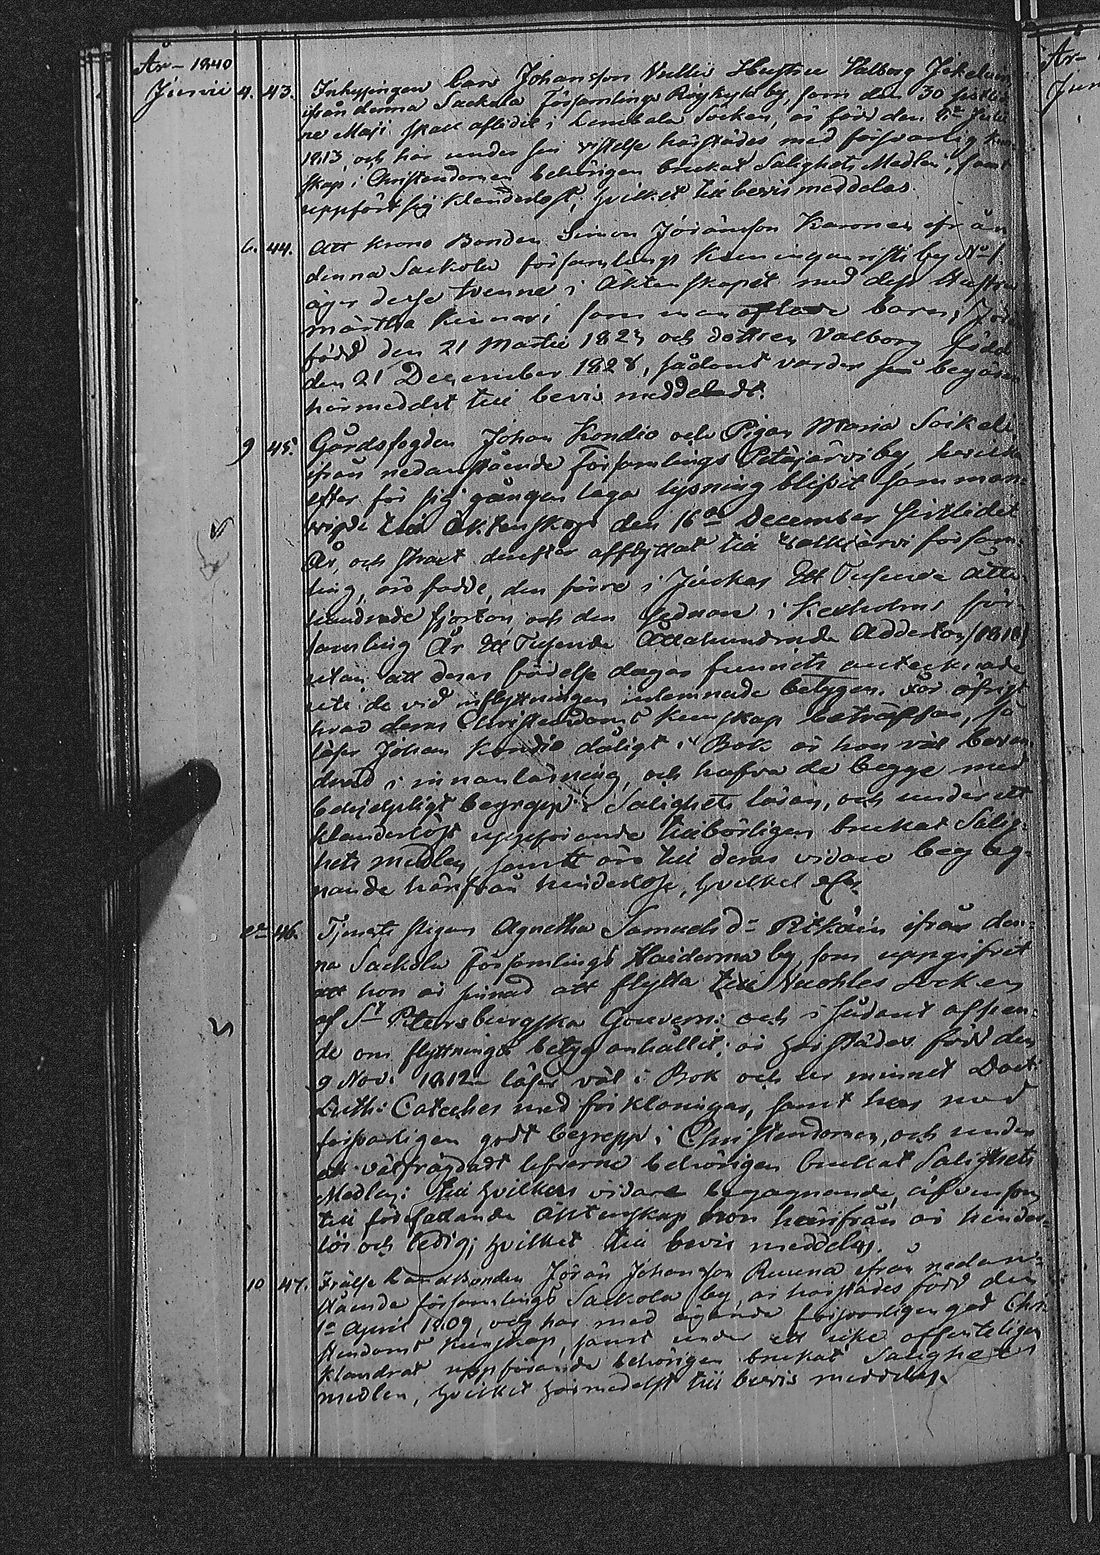 År 1840
Junii 4. 43. Inhysingen Lars Johansson Hustru Valborg
ifrån denna Sackola Församlings by, som den 30 sistl
ne Maji skall aflidit i Lembala Socken, är född den Julii
1813 och har under sin vistelse härstädes med försvarlig kun
skap i Christendomen behörigen brukat Salighets Medlen, samt
uppfört sig klanderlöst; hvilket till bevis meddelas.
6. 44. Att Krono Bonden Simon Jöransson Karonen ifrån
denna Sackola församlings by No 1
äger desse tvenne i Äktenskapet med dess Hustru
Märtha Kinnari sammanaflade barn;
född den 21 Martii 1823 och dottren Valborg född
den 21 December 1828, sådant varder på begäran
härmedelst till bevis meddeladt.
9 45. Gårdsfogden Johan Kondio och Pigan Maria Soikeli
ifrån nedanstående Församlings Petäjärvi by, hvilka
efter för sig gången laga lysning blifvit samman-
vigde till Äktenskap den 16de December sistlidet
År, och strax derefter afflyttat till Valkjärvi försam-
ling, äro födde, den förre i Jäckes Ett Tusende Åtta-
hundrade fjorton och den sednare i Kexholms för-
samling År Ett Tusende Åttahundrade Adderton (1818)
utan att deras födelse dagar funnits antecknade
uti de vid inflyttningen inlemnade betygen. För öfrigt
hvad deras Christendoms kunskap beträffar, så
läser Johan Kondio dåligt i Bok är hon väl bevan-
drad i innanläsning, och hafva de begge med
behjelpligt begrepp i Salighets läran, och under ett
klanderlöst uppförande tillbörligen brukat Salig-
hets medlen, samt äro till deras vidare begag-
nande härifrån hinderlöse, hvilket
46. Tjenste pigan Agnetha Samuelsd:r Pitkäin ifrån den-
na Sackola Församlings Haiderma by, som uppgifvit
att hon är sinnad att flytta till Socken
af S:t Petersburgska Gouvern: och i sådant afseen-
de om flyttnings betyg anhållit; är härstädes född den
9 Nov: 1812 läser väl i Bok och ur minnet Doct:
Luth: Cateches med förklaringar, samt har med
försvarligen godt begrepp i Christendomen, och under
ett välfrägdadt lefverne behörigen brukat Salighets
Medlen: till hvilkas vidare begagnande, äfvensom
till förefallande Äktenskap hon härifrån är hinder-
lös och ledig; hvilket till bevis meddelas.
10 47. Frälse Landbonden Jöran Johansson Ruuna ifrån nedan-
stående församlings Sackola by, är härstädes född den
1 April 1809, och har med ägande försvarligen god Chri-
stendoms kunskap, samt under ett icke offenteligen
klandrat uppförande behörigen brukat Salighets
medlen, hvilket härmedelst till bevis meddelas.
År
Jun